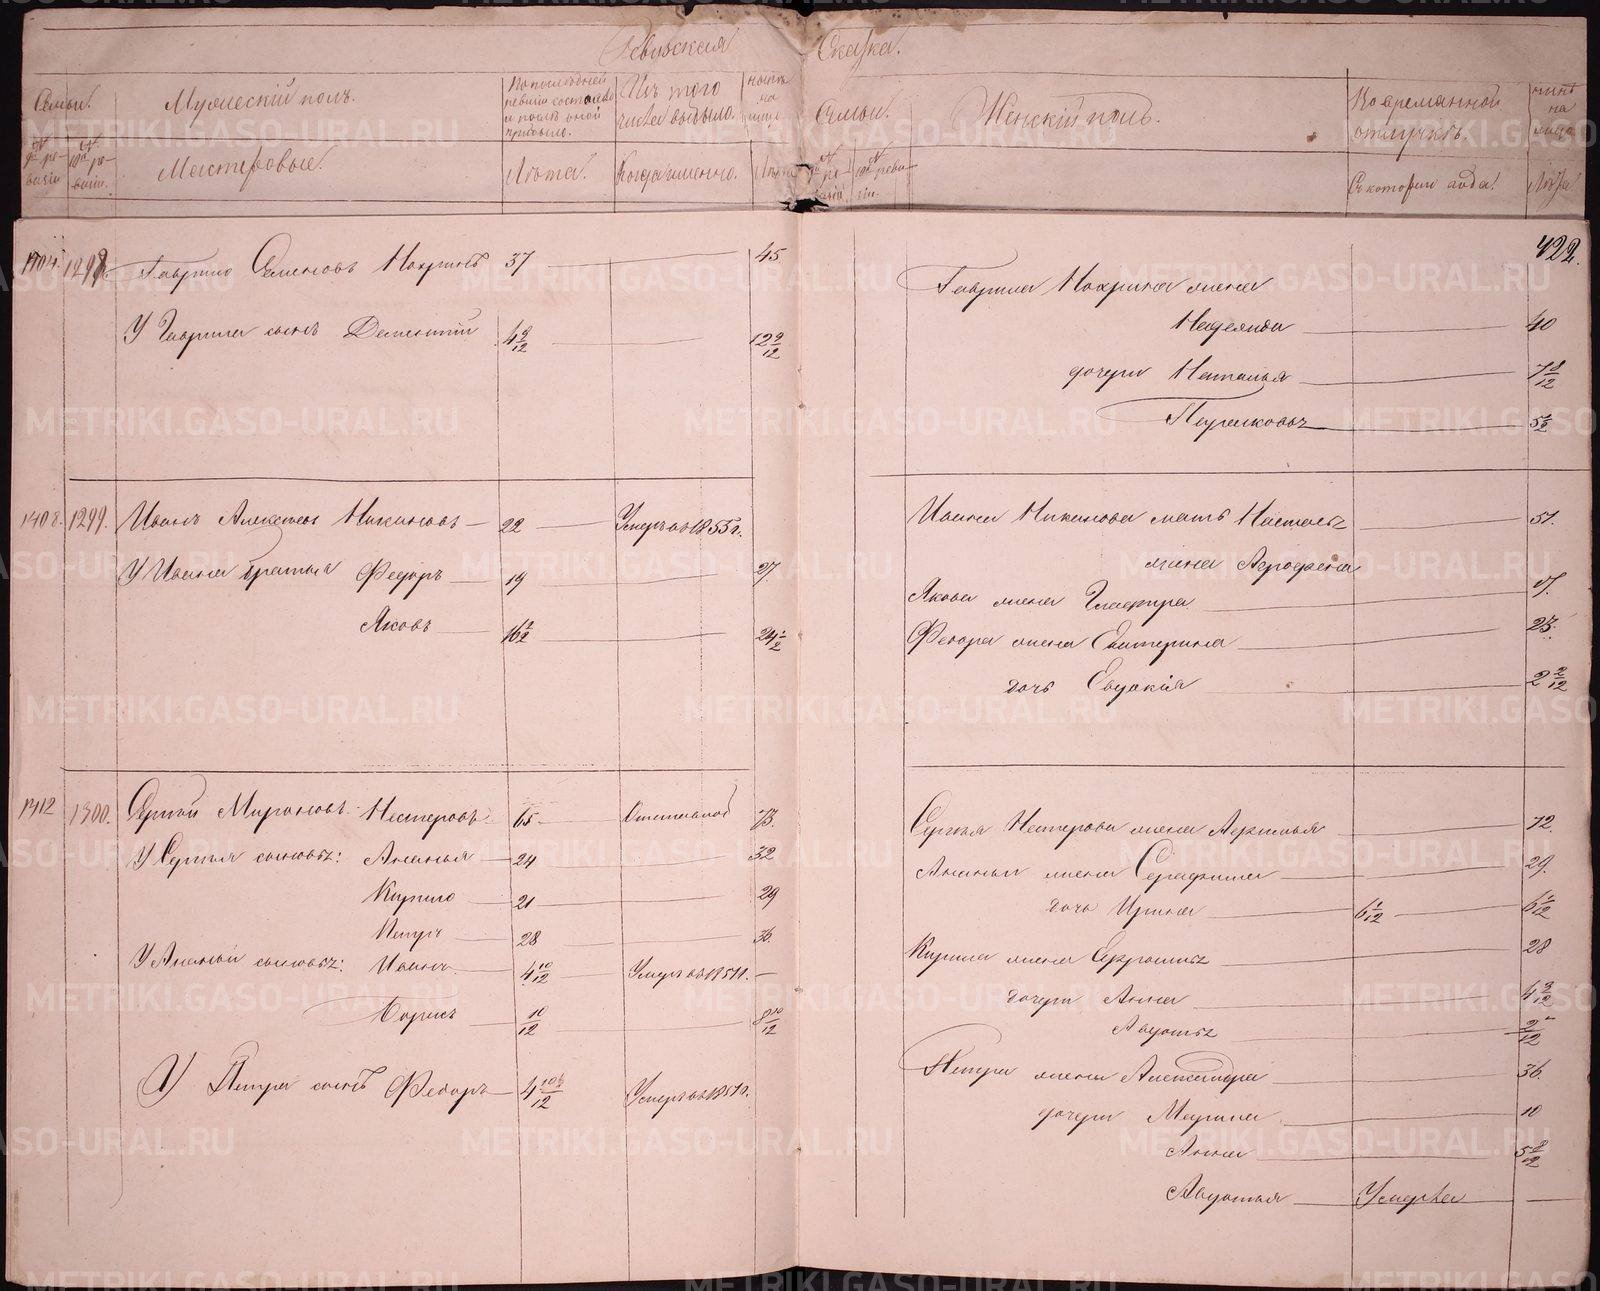 Ревизская Сказка.
Семьи. Мужескій полъ. По последней ревизіи состояло и послѣ оной прибыло. Изъ того числа выбыло. нынѣ на лицо
№ 9й ревизіи № 10й ревизіи. Мастеровые. Лѣта. Когда именно. Лѣта
Семьи. Женскій полъ. Во временной отлучкѣ. нынѣ на лицо
№ ревизіи № 10 ревизіи. Съ котораго года. Лѣта
422.
1298. Гаврило Семеновъ Нохринъ 37 45
У Гаврила сынъ Дементій 4 9/12 12 9/12
Гаврила Нохрина жена
Надежда 40
дочери Наталья 7 8/12
Парасковья 5 1/2
1408. 1299. Иванъ Алексѣевъ Никоновъ 22 Умеръ въ 1855 г.
У Ивана братья Федоръ 19 27
Яковъ 16 1/2 24 1/2
Ивана Никонова мать Настасья 51.
жена Агрофена
Якова жена Глафира
Федора жена Екатерина 23.
дочь Евдокія 2 2/12
1412 1300. Сергѣй Мироновъ Нестеровъ 65 Отставной 73.
У Сергѣя сыновья: Ананья 24 32
Кирило 21 29
Петръ 28 36
У Ананьи сыновья: Иванъ 4 10/12 Умеръ въ 1851 г.
Борисъ 10/12 8 10/12
У Петра сынъ Федоръ 4 10/12 Умеръ въ 1851 г.
Сергѣя Нестерова жена Афимья 72.
Ананьи жена Серафима 29.
дочь Ирина 6 1/12 6 1/12
Кирила жена Ефросинья 28
дочери Анна 4 9/12
Авдотья 2/12
Петра жена Александра 36.
дочери Марина 10
Анна 5 8/12
Авдотья Умерла
METRIKI.GASO-URAL.RU